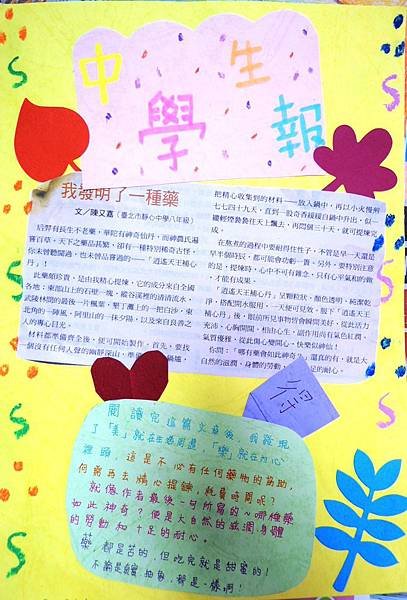 中學生報
我發明了一種藥
文／陳又嘉（臺北市靜心中學八年級）
后羿有長生不老藥，華陀有神奇仙丹，而神農氏遍
嘗百草，天下之藥品甚繁，卻有一種特別稀奇古怪，
你未曾聽聞過，也未曾品嘗過的——「逍遙天王補心
丹」！
此藥頗珍貴，是由我精心提煉，它的成分來自全國
各地：東部山上的石埋一塊，縱谷溪裡的清清流水，
武陵林間的最後一片楓葉，墾丁灘上的一把白沙，東
北角的一陣風，阿里山的一抹夕陽，以及來自良善之
人的專心目光。
材料都準備齊全後，便可開始製作。首先，要找
個沒有任何人聲的幽靜深山，準備
把精心收集到的材料——放入鍋中，再以小火慢煎
七七四十九天，直到一股奇香緩緩自鍋中升出，似一
縷輕煙裊裊往天上飄去，再悶個三十天，就可提煉完
成。
在熬煮的過程中要耐得住性子，不管是早一天還是
早半個時辰，都可能會功虧一簣。另外，要特別注意
的是：提煉時，心中不可有雜念，只有心平氣和的做
，才能有成果。
「逍遙天王補心丹」呈顆粒狀，顏色透明、純潔乾
淨，搭配開水服用，一天便可見效。服下「逍遙天王
補心丹」後，眼前所見事物皆會瞬間美好，從此活力
充沛、心胸開闊，相由心生，副作用尚有氣色紅潤、
氣質優雅，從此傷心變開心，快樂似神仙！
你問：「哪有藥會如此神奇？」還真的有，就是大
自然的滋潤、身體的勞動，
足的耐心。
得
閱讀完這篇文章後，我發現
了「美」就在生活周遭，「樂」就在內心
裡頭，這是不必有任何藥物的幫助，
何需再去精心提鍊，耗費時間呢？
就像作者最後一句所寫的～哪種藥
如此神奇？便是大自然的滋潤身體
的勞動和十足的耐心。
藥，都是苦的，但吃完就是甜蜜的！
不論是具體、抽象，都是一樣啊！